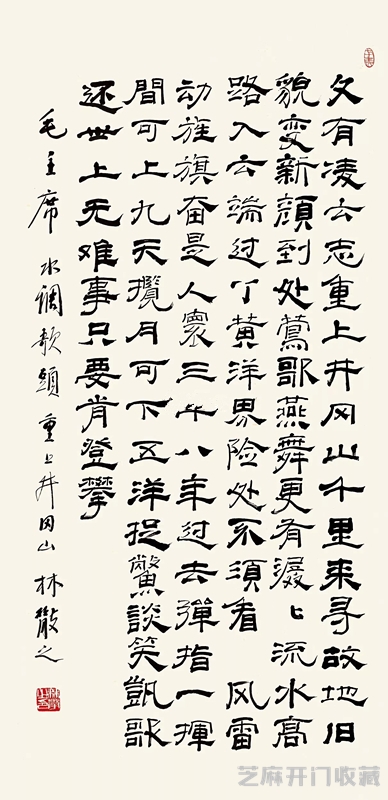 久有凌云志重上井冈山千里来寻故地旧
貌变新顔到处莺歌燕舞更有潺々流水高
路入云端过了黄洋界险处不須看 风雷
动旌旗奋是人寰三十八年过去彈指一揮
間可上九天攬月可下五洋捉鱉談笑凱歌
还世上无难事只要肯登攀
毛主席 水调歌頭 重上井冈山 林散之
芝麻开门收藏